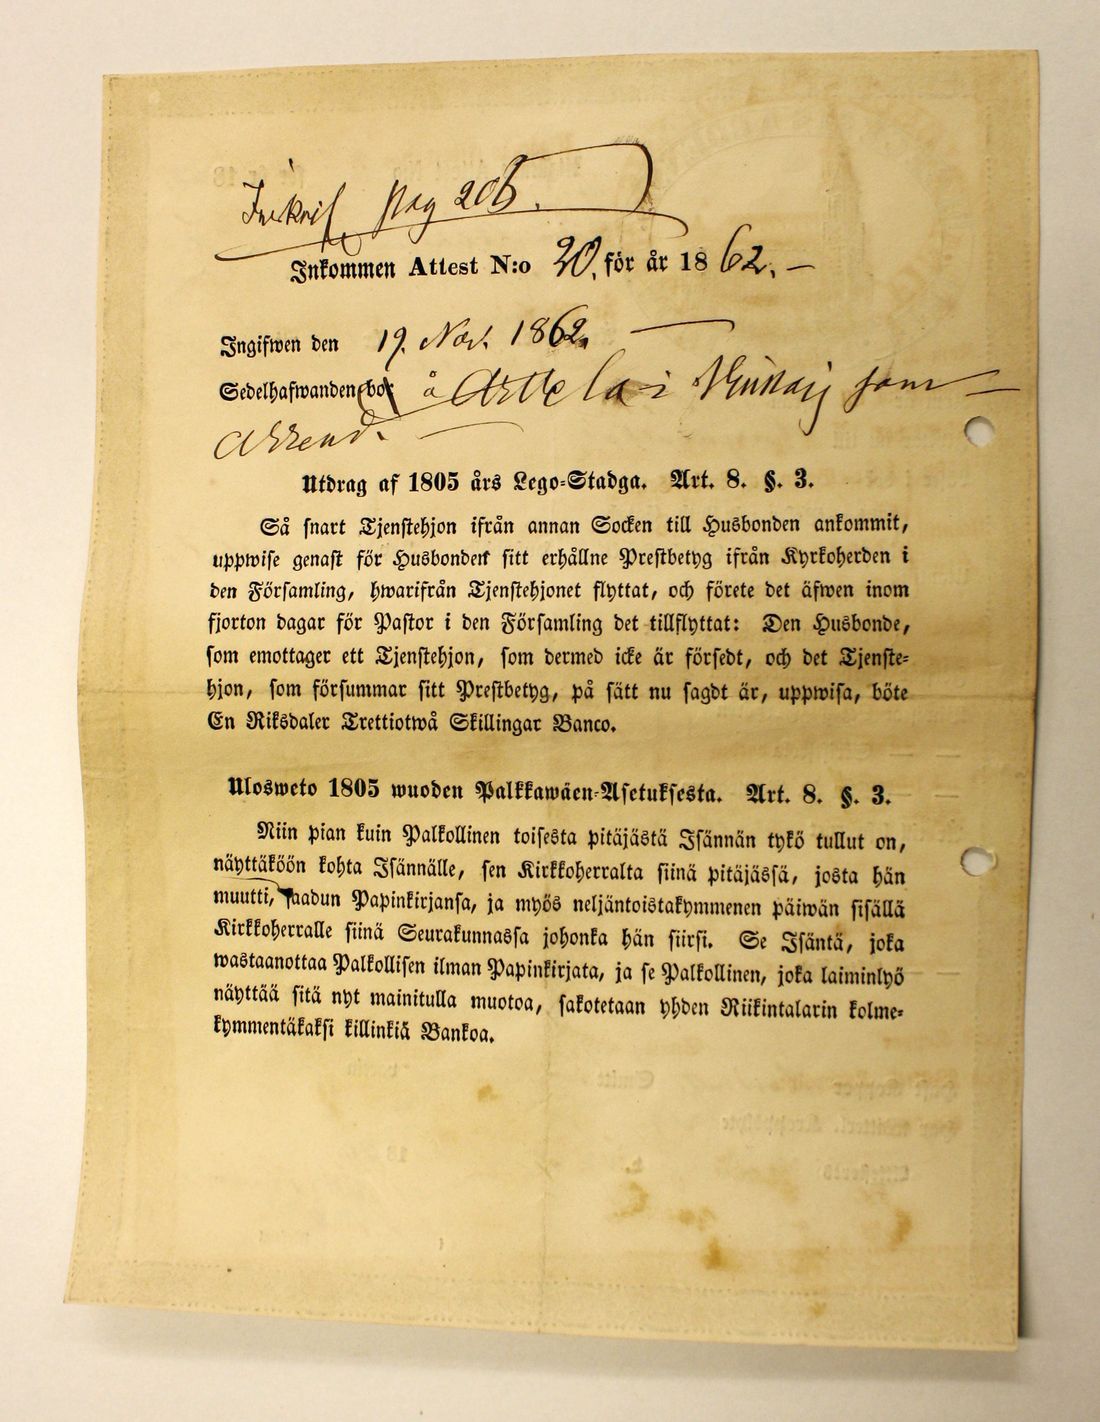 Inskrif. pag 206.
Inkommen Attest N:o 20. för år 1862. —
Ingifwen den 19. Nov. 1862. —
Sedelhafwanden bor å Attela i som
Arrend.
Utdrag af 1805 års Lego-Stadga. Art. 8. §. 3.
Så snart Tjenstehjon ifrån annan Socken till Husbonden ankommit,
uppwise genast för Husbonden sitt erhållne Prestbetyg ifrån Kyrkoherden i
den Församling, hwarifrån Tjenstehjonet flyttat, och förete det äfwen inom
fjorton dagar för Pastor i den Församling det tillflyttat: Den Husbonde,
som emottager ett Tjenstehjon, som dermed icke är försedt, och det Tjenste-
hjon, som försummar sitt Prestbetyg, på sätt nu sagdt är, uppwisa, böte
En Riksdaler Trettiotwå Skillingar Banco.
Ulosweto 1805 wuoden Palkkawäen-Asetuksesta. Art. 8. §. 3.
Niin pian kuin Palkollinen toisesta pitäjästä Isännän tykö tullut on,
näyttäköön kohta Isännälle, sen Kirkkoherralta siinä pitäjässä, josta hän
muutti, saadun Papinkirjansa, ja myös neljäntoistakymmenen päiwän sisällä
Kirkkoherralle siinä Seurakunnassa johonka hän siirsi. Se Isäntä, joka
wastaanottaa Palkollisen ilman Papinkirjata, ja se Palkollinen, joka laiminlyö
näyttää sitä nyt mainitulla muotoa, sakotetaan yhden Riikintalarin kolme-
kymmentäkaksi killinkiä Bankoa.